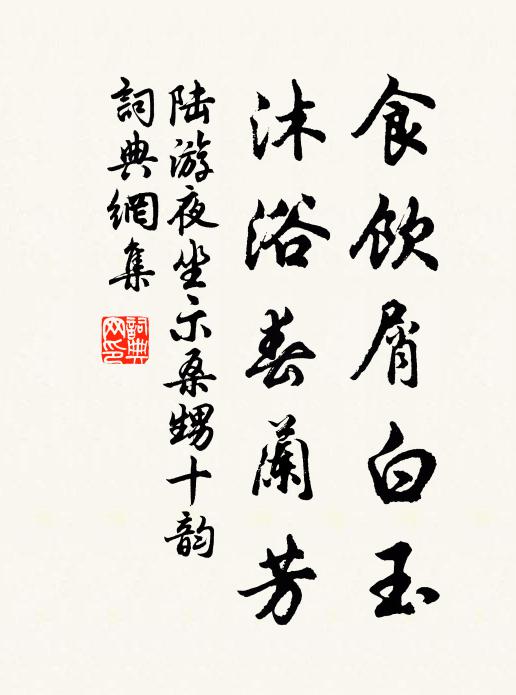 食飲屑白玉
沐浴春蘭芳
陆游夜坐示桑甥十韵
詞典網集
詞典
网印